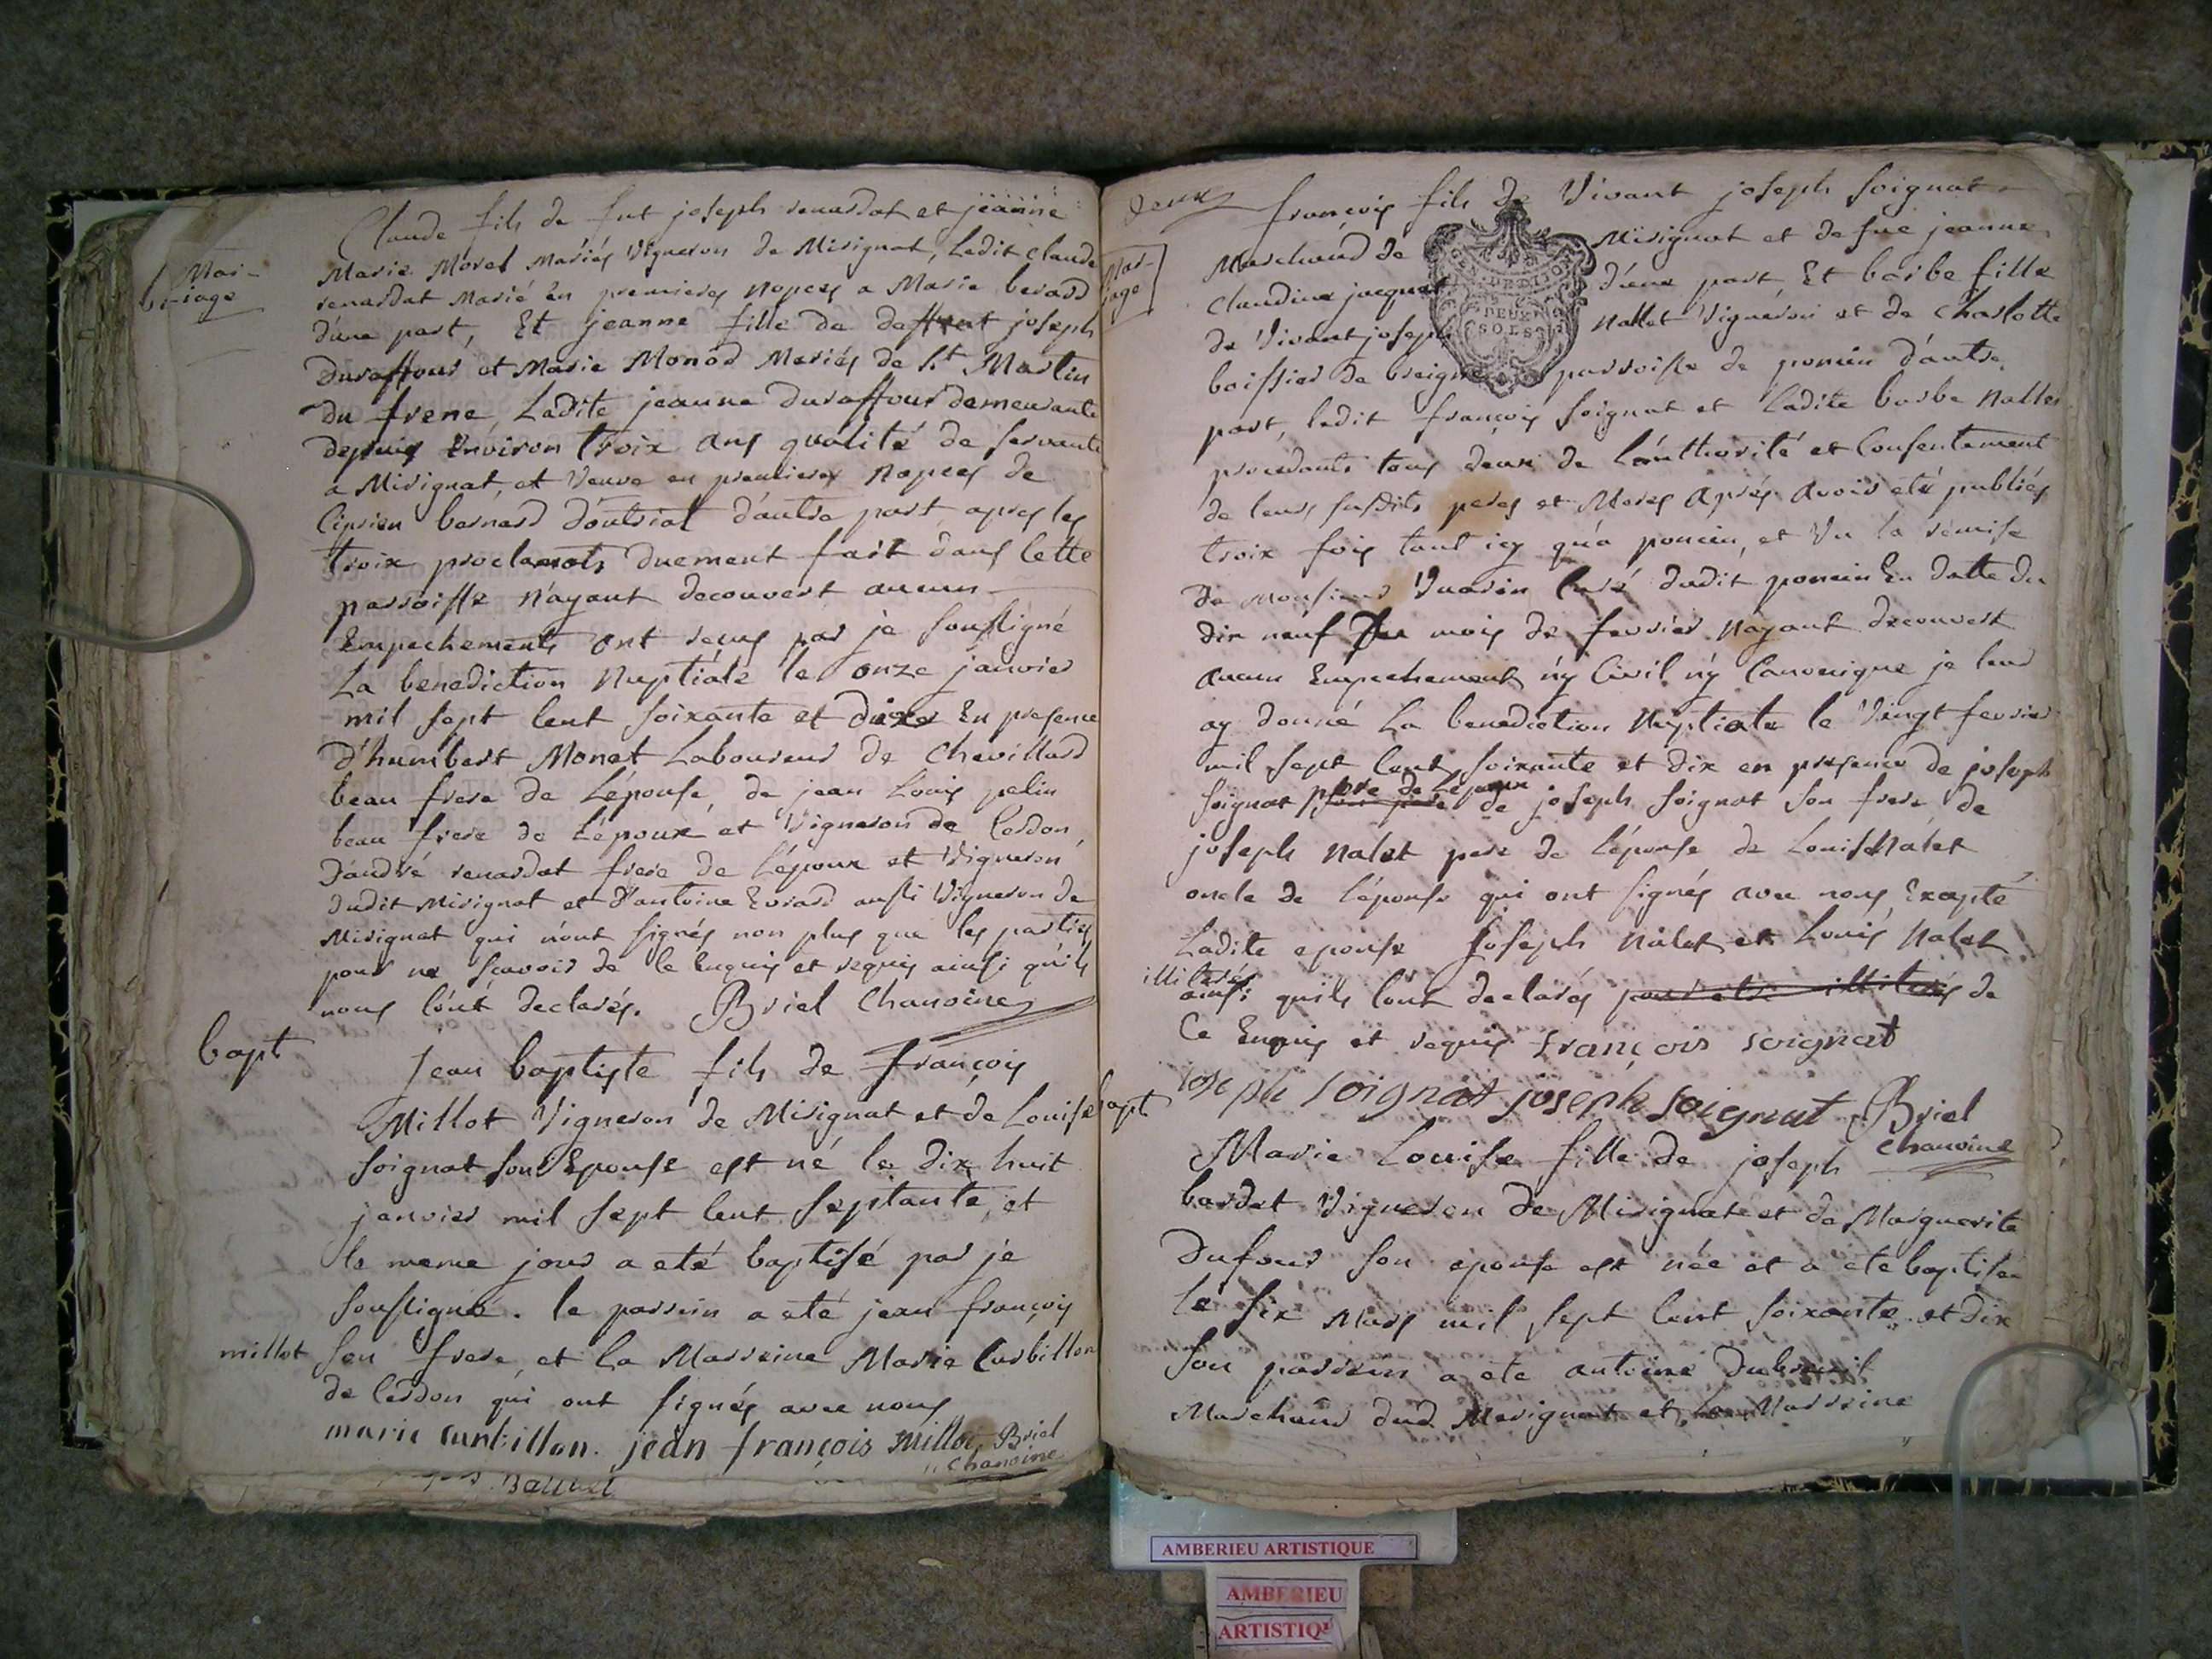 Mar-
riage
Claude fils de fut joseph renardat et jeanne
Marie Morel Mariés Vigneron de Mirignat, Ledit Claude
renardat Marié En premieres nopces a Marie berard
d'une part, Et jeanne fille de deffunt joseph
Duraffour et Marie Monod Mariés de St Martin
du frene, Ladite jeanne Duraffour demeurante
depuis Environ troix ans qualité de servante
a Mirignat, et Veuve en premieres Nopces de
Ciprien bernard d'outriat d'autre part apres les
troix proclamats duement fait dans cette
parroisse N'ayant decouvert aucun
Empechements ont reçus par je soussigné
La benediction Nuptiale le onze janvier
mil sept cent soixante et dixe En presence
d'humbert Monet Laboureur de Chevillard
beau frere de L'épouse, de jean Louis pelin
beau frere de L'époux et Vigneron de Cerdon,
d'andré renardat frere de L'époux et Vigneron
dudit Mirignat et d'antoine Evrard aussi Vigneron de
Mirignat qui n'ont signés non plus que les parties
pour ne sçavoir de ce Enquis et requis ainsi qu'ils
nous l'ont declarés. Briel Chanoine
bapt
jean baptiste fils de françois
Millot Vigneron de Mirignat et de Louise
soignat son Epouse est né le dix huit
janvier mil sept cent septante, et
le meme jour a eté baptisé par je
soussigné. le parrein a eté jean françois
millot son frere, et la Marreine Marie Curbillon
de Cerdon qui ont signés avec nous
marie curbillon. jean françois Millot Briel
Chanoine
deux
Mar-
iage
françois fils de Vivant joseph soignat
Marchand de Mirignat et de fue jeanne
Claudine jacquet d'une part, Et barbe fille
de Vivant joseph Nallet Vigneron et de Charlotte
boissier de breigne parroisse de poncin d'autre
GEN DEUX SOLS
part, ledit françois soignat et ladite barbe Nallet
procedants tous deux de L'authorité et Consentement
de leurs susdits peres et Meres Aprés avoir eté publiés
troix fois tant icy qu'a poncin, et Vu la remise
de Monsieur Vuarin Curé dudit poncin En datte du
dix neuf du mois de fevrier N'ayant decouvert
aucun Empechement n'y Civil n'y Canonique je leur
ay donné La benediction Nuptiale le Vingt fevrier
mil sept cent soixante et dix en presence de joseph
soignat pere de L'epoux de joseph soignat son frere de
joseph Nalet pere de l'épouse de Louis Nalet
oncle de l'épouse qui ont signés avec nous, Excepté
Ladite epouse joseph Nalet et Louis Nalet
illiterés
ainsi qu'ils l'ont declarés pour etre illiterés de
Ce Enquis et requis françois soignat
joseph soignat joseph soignat Briel
Chanoine
bapt
Marie Louise fille de joseph
bardet Vigneron de Mirignat et de Marguerite
Dufour son epouse est née et a eté baptisée
le six Mars mil sept cent soixante et dix
son parrein a eté antoine Dubreuil
Marchand dud. Merignat et La Marreine
AMBERIEU ARTISTIQUE
AMBERIEU
ARTISTIQ